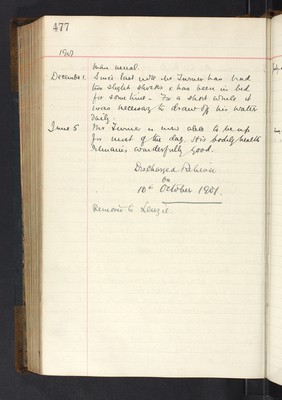 477
1901
than usual.
December 1. Since last note Mr Turner has had
two slight strokes & has been in bed
for some time. For a short while it
was necessary to draw off his water
daily.
June 5 Mr Turner is now able to be up
for most of the day. His bodily health
remains wonderfully good.
Discharged Relieved
on
10th October 1901.
Removed to